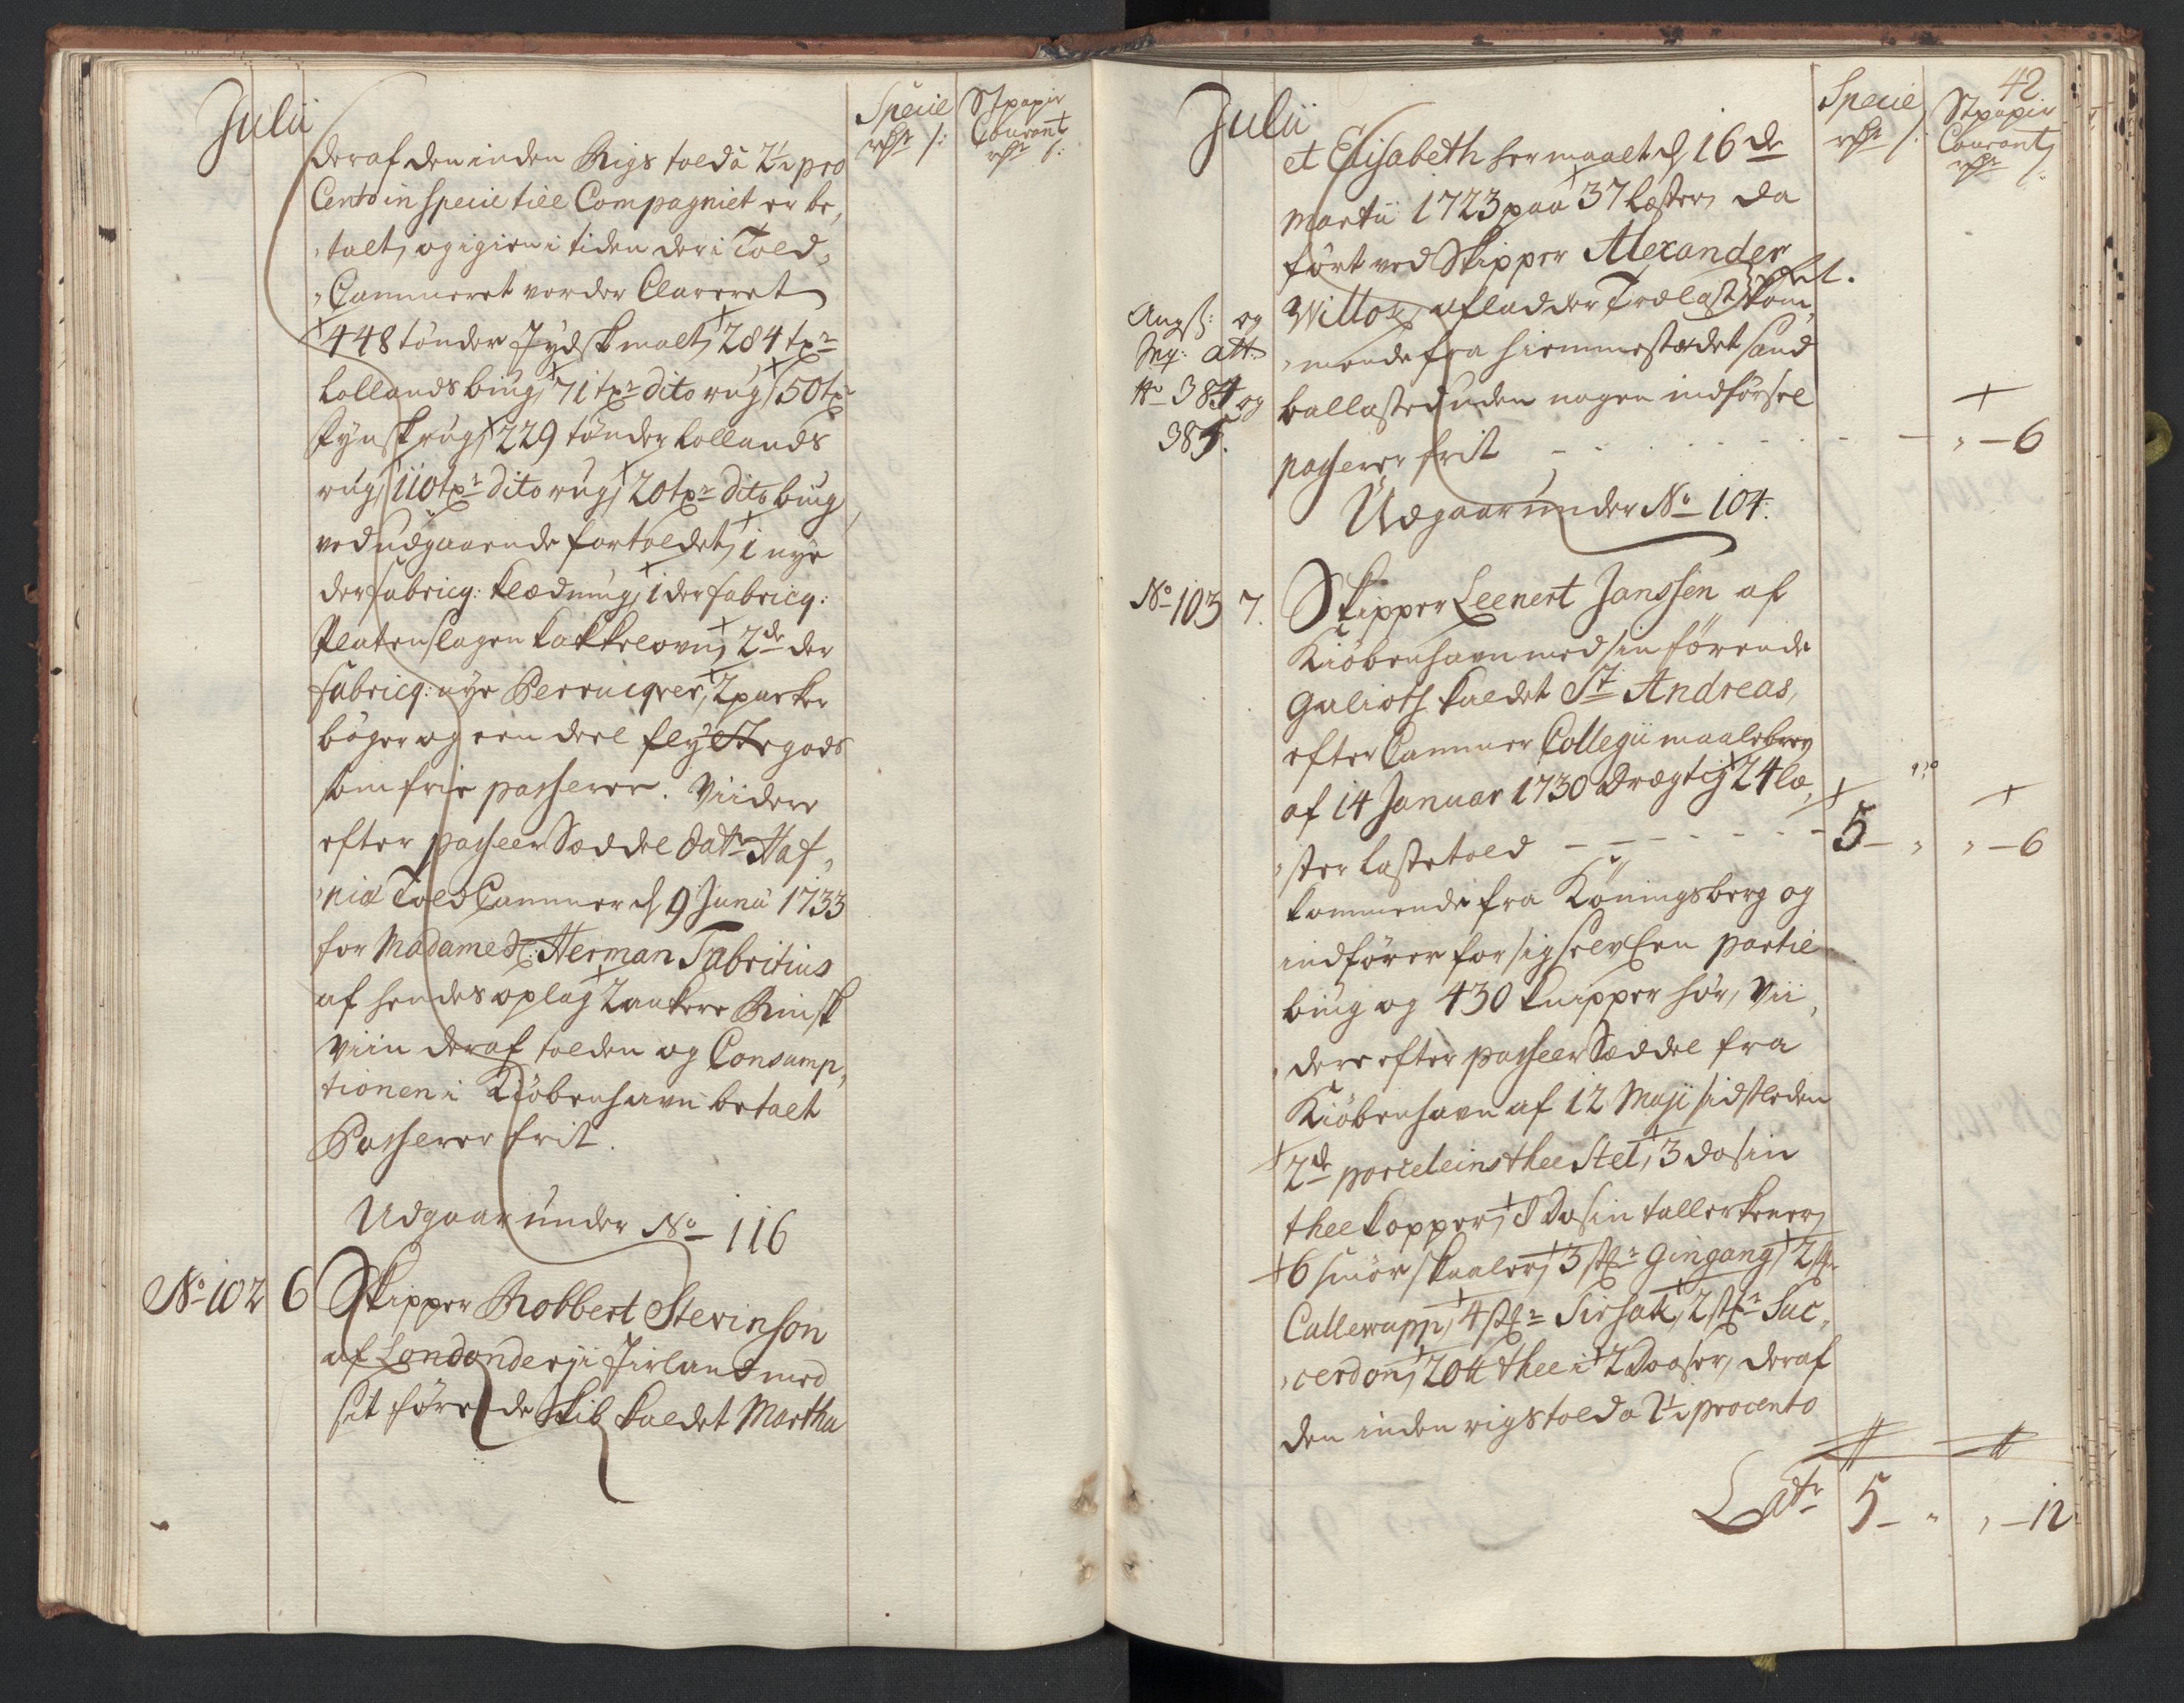 Julii
Specie Stpapir
Courant
rdr ß: rdr ß:
deraf den inden Rigs told à 2½ pro
Cento in specie till Compagniet er be,
talt, og igien i tiden der i Told,
Cammeret vorder Clareret
448 tönder Jydsk malt, 284 tr
Lollands biug, 71 tr dito rug, 50 tr
fynsk rug, 229 tönder Lollands
rug, 110 tr dito rug, 20 tr dito biug
ved udgaaende fortoldet, 1 nye
der fabriq: klædning, 1 der fabricq:
Kakkelovn, 2de der
fabricq: nye Perrucqver, 2 parker
bøger og een deel flytte gods
som frie passerer. Viidere
efter passeer Sæddel datr Haf,
niæ Told Cammer d 9 Junii 1733
for Madame Sl: Herman Fabritius
af hendes oplag 2 ankere Rinsk
Viin deraf tolden og Consump,
tionen i Kiöbenhavn betalt
Passerer frit.
Udgaar under No 116
No 102 6 Skipper Robbert Stevinson
af Londonderri i Jirland med
sit förende Skib kaldet Martha
42
Julii
Specie Stpapir
Courant
rdr ß: rdr ß:
et Elisabeth her maalt d 16de
Martii 1723 paa 37 læster, da
fört ved Skipper Alexander
Willox, aflader Trælast, kom,
mende fra hiemmestædet sand
ballasted uden nogen indførsel
passerer frit - - - - „ - 6
og
att:
No 384 og
385.
Udgaar under No 104.
No 103 7. Skipper Leenert Janssen af
Kiöbenhavn med sin förende
Galioth kaldet St Andreas,
efter Cammer Collegii maalebrev
af 14 Januar 1730 drægtig 24 læ,
ster lastetold - - - - 5 - „ „ - 6
kommende fra Köningsberg og
indfører for sig selv Een partie
biug og 430 knipper hør, Vii,
dere efter passeer Sæddel fra
Kiöbenhavn af 12 Maji sidstleden
2de porceleins thee Stel, 3 dosin
thee kopper, 8 dosin tallerkener,
6 smör skaaler, 3 str Gingang, 2 str
Callewapp, 4 str Sirsak, 2 str Suc,
cerdon, 20 ℔ thee i 2 Daaser, deraf
den inden rigs told a 2½ procento
Latr 5 - „ „ - 12